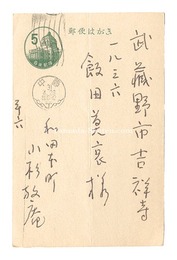 郵便はがき
5
武蔵野市吉祥寺
一八三六
飯田莫哀様
和田本町
小杉放庵